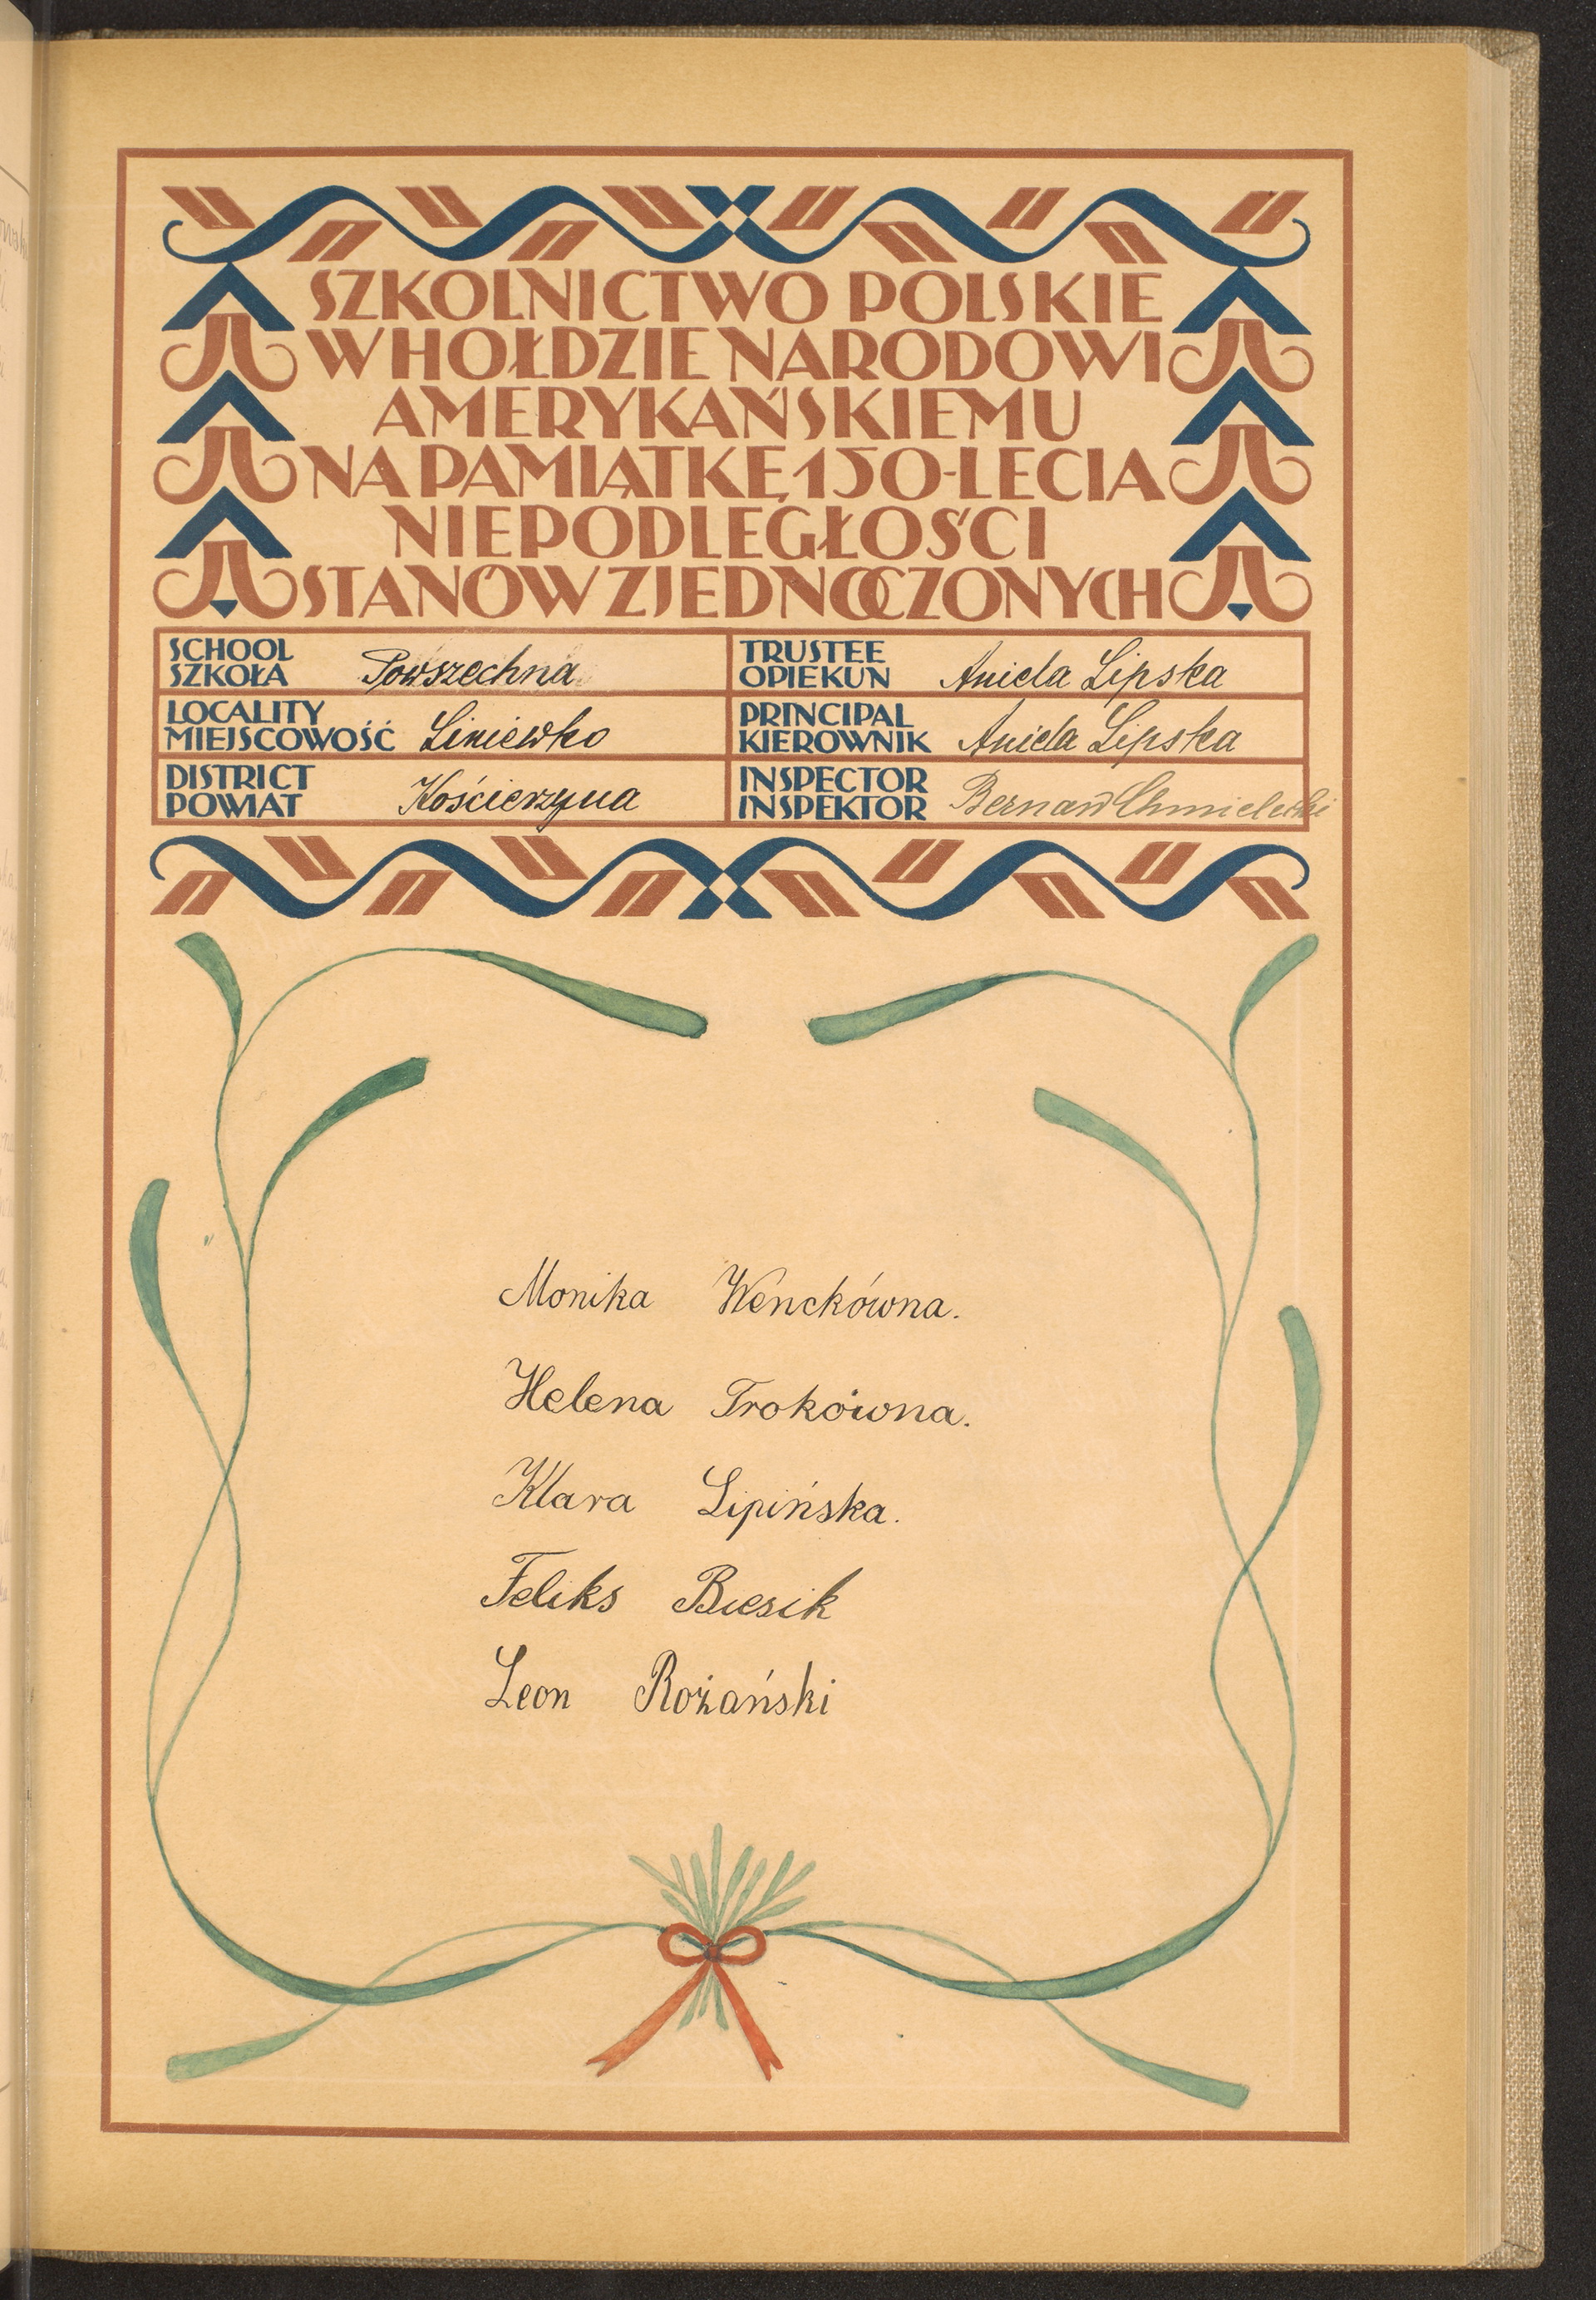 SZKOLNICTWO POLSKIE
W HOŁDZIE NARODOWI
AMERYKAŃSKIEMU
NA PAMIĄTKĘ 150-LECIA
NIEPODLEGŁOŚCI
STANÓW ZJEDNOCZONYCH
SCHOOL
SZKOŁA Powszechna
TRUSTEE
OPIEKUN Aniela Lipska
LOCALITY
MIEJSCOWOŚĆ Liniewko
PRINCIPAL
KIEROWNIK Aniela Lipska
DISTRICT
POWIAT Kościerzyna
INSPECTOR
INSPEKTOR Bernard Chmielecki
Monika Wenckówna.
Helena Trokówna.
Klara Lipińska.
Feliks Biesik
Leon Rożański